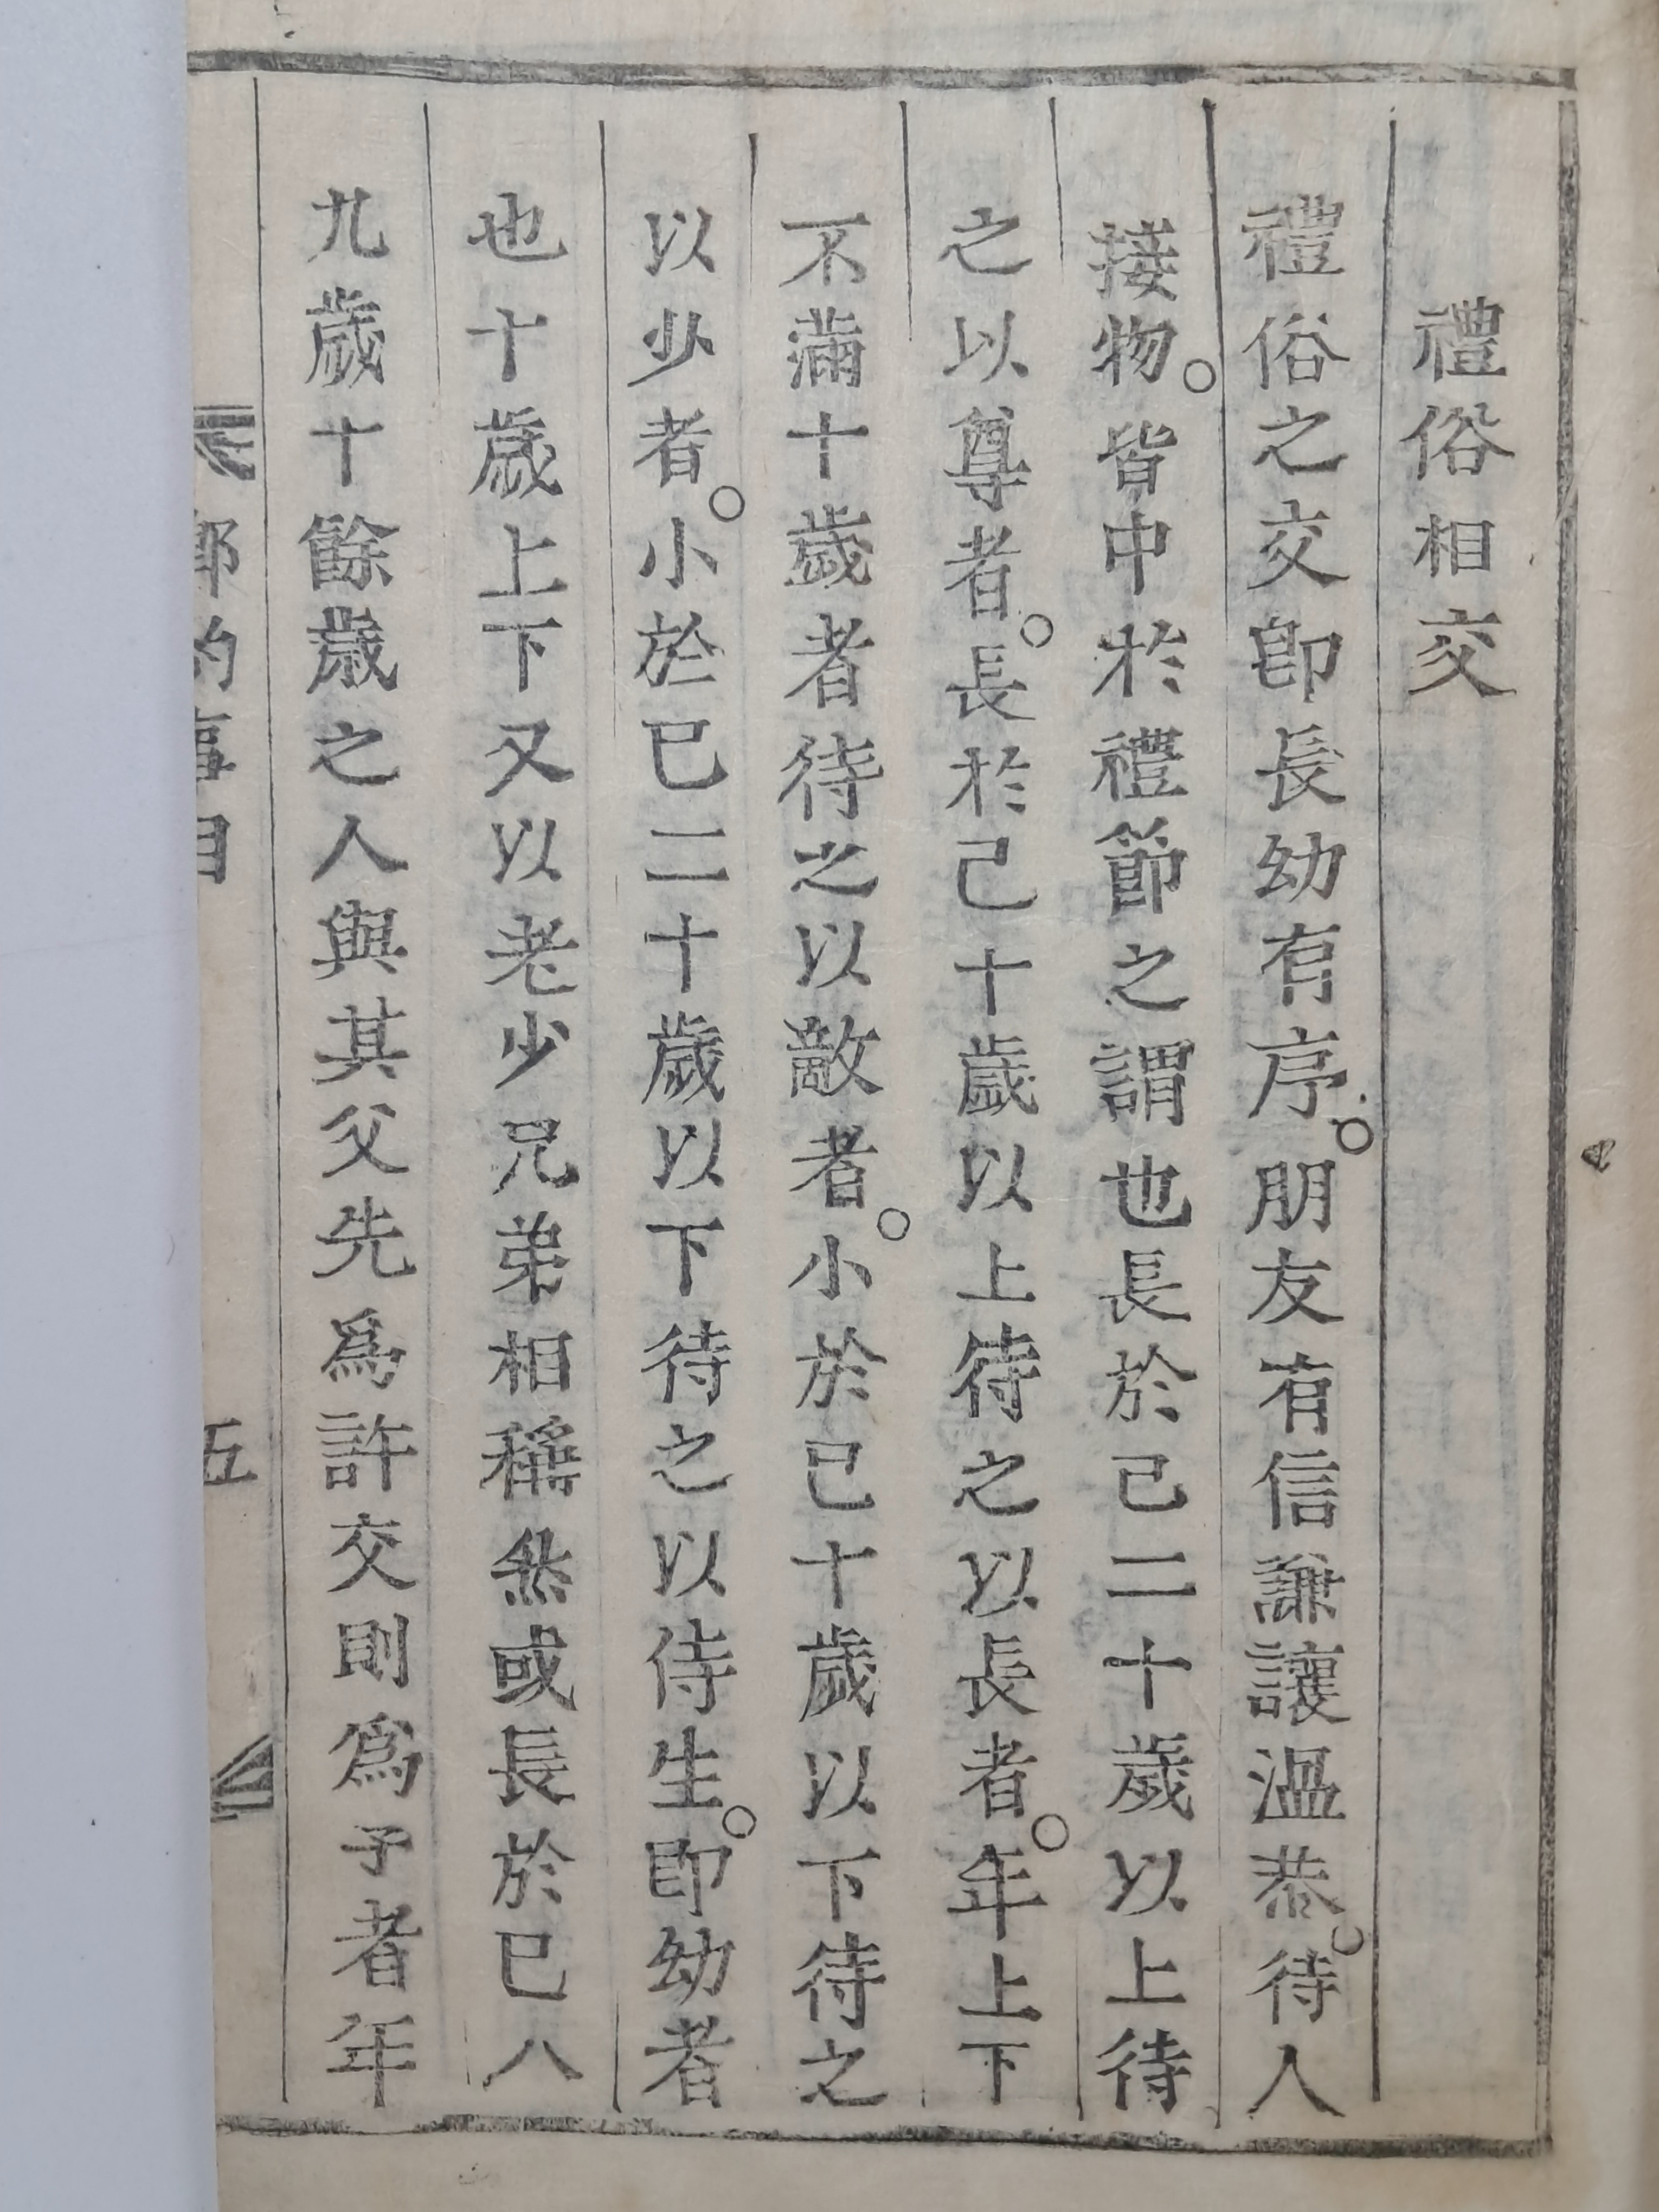 禮俗相交
禮俗之交卽長幼有序○朋友有信謙讓温恭○待人
接物○皆中於禮節之謂也長於己二十歲以上待
之以尊者○長於己十歲以上待之以長者○年上下
不滿十歲者待之以敵者○小於己十歲以下待之
以少者○小於已二十歲以下待之以侍生○即幼者
也十歲上下又以老少兄弟相稱然或長於已八
九歲十餘歲之人與其父先爲許交則爲子者年
鄉約事目 五